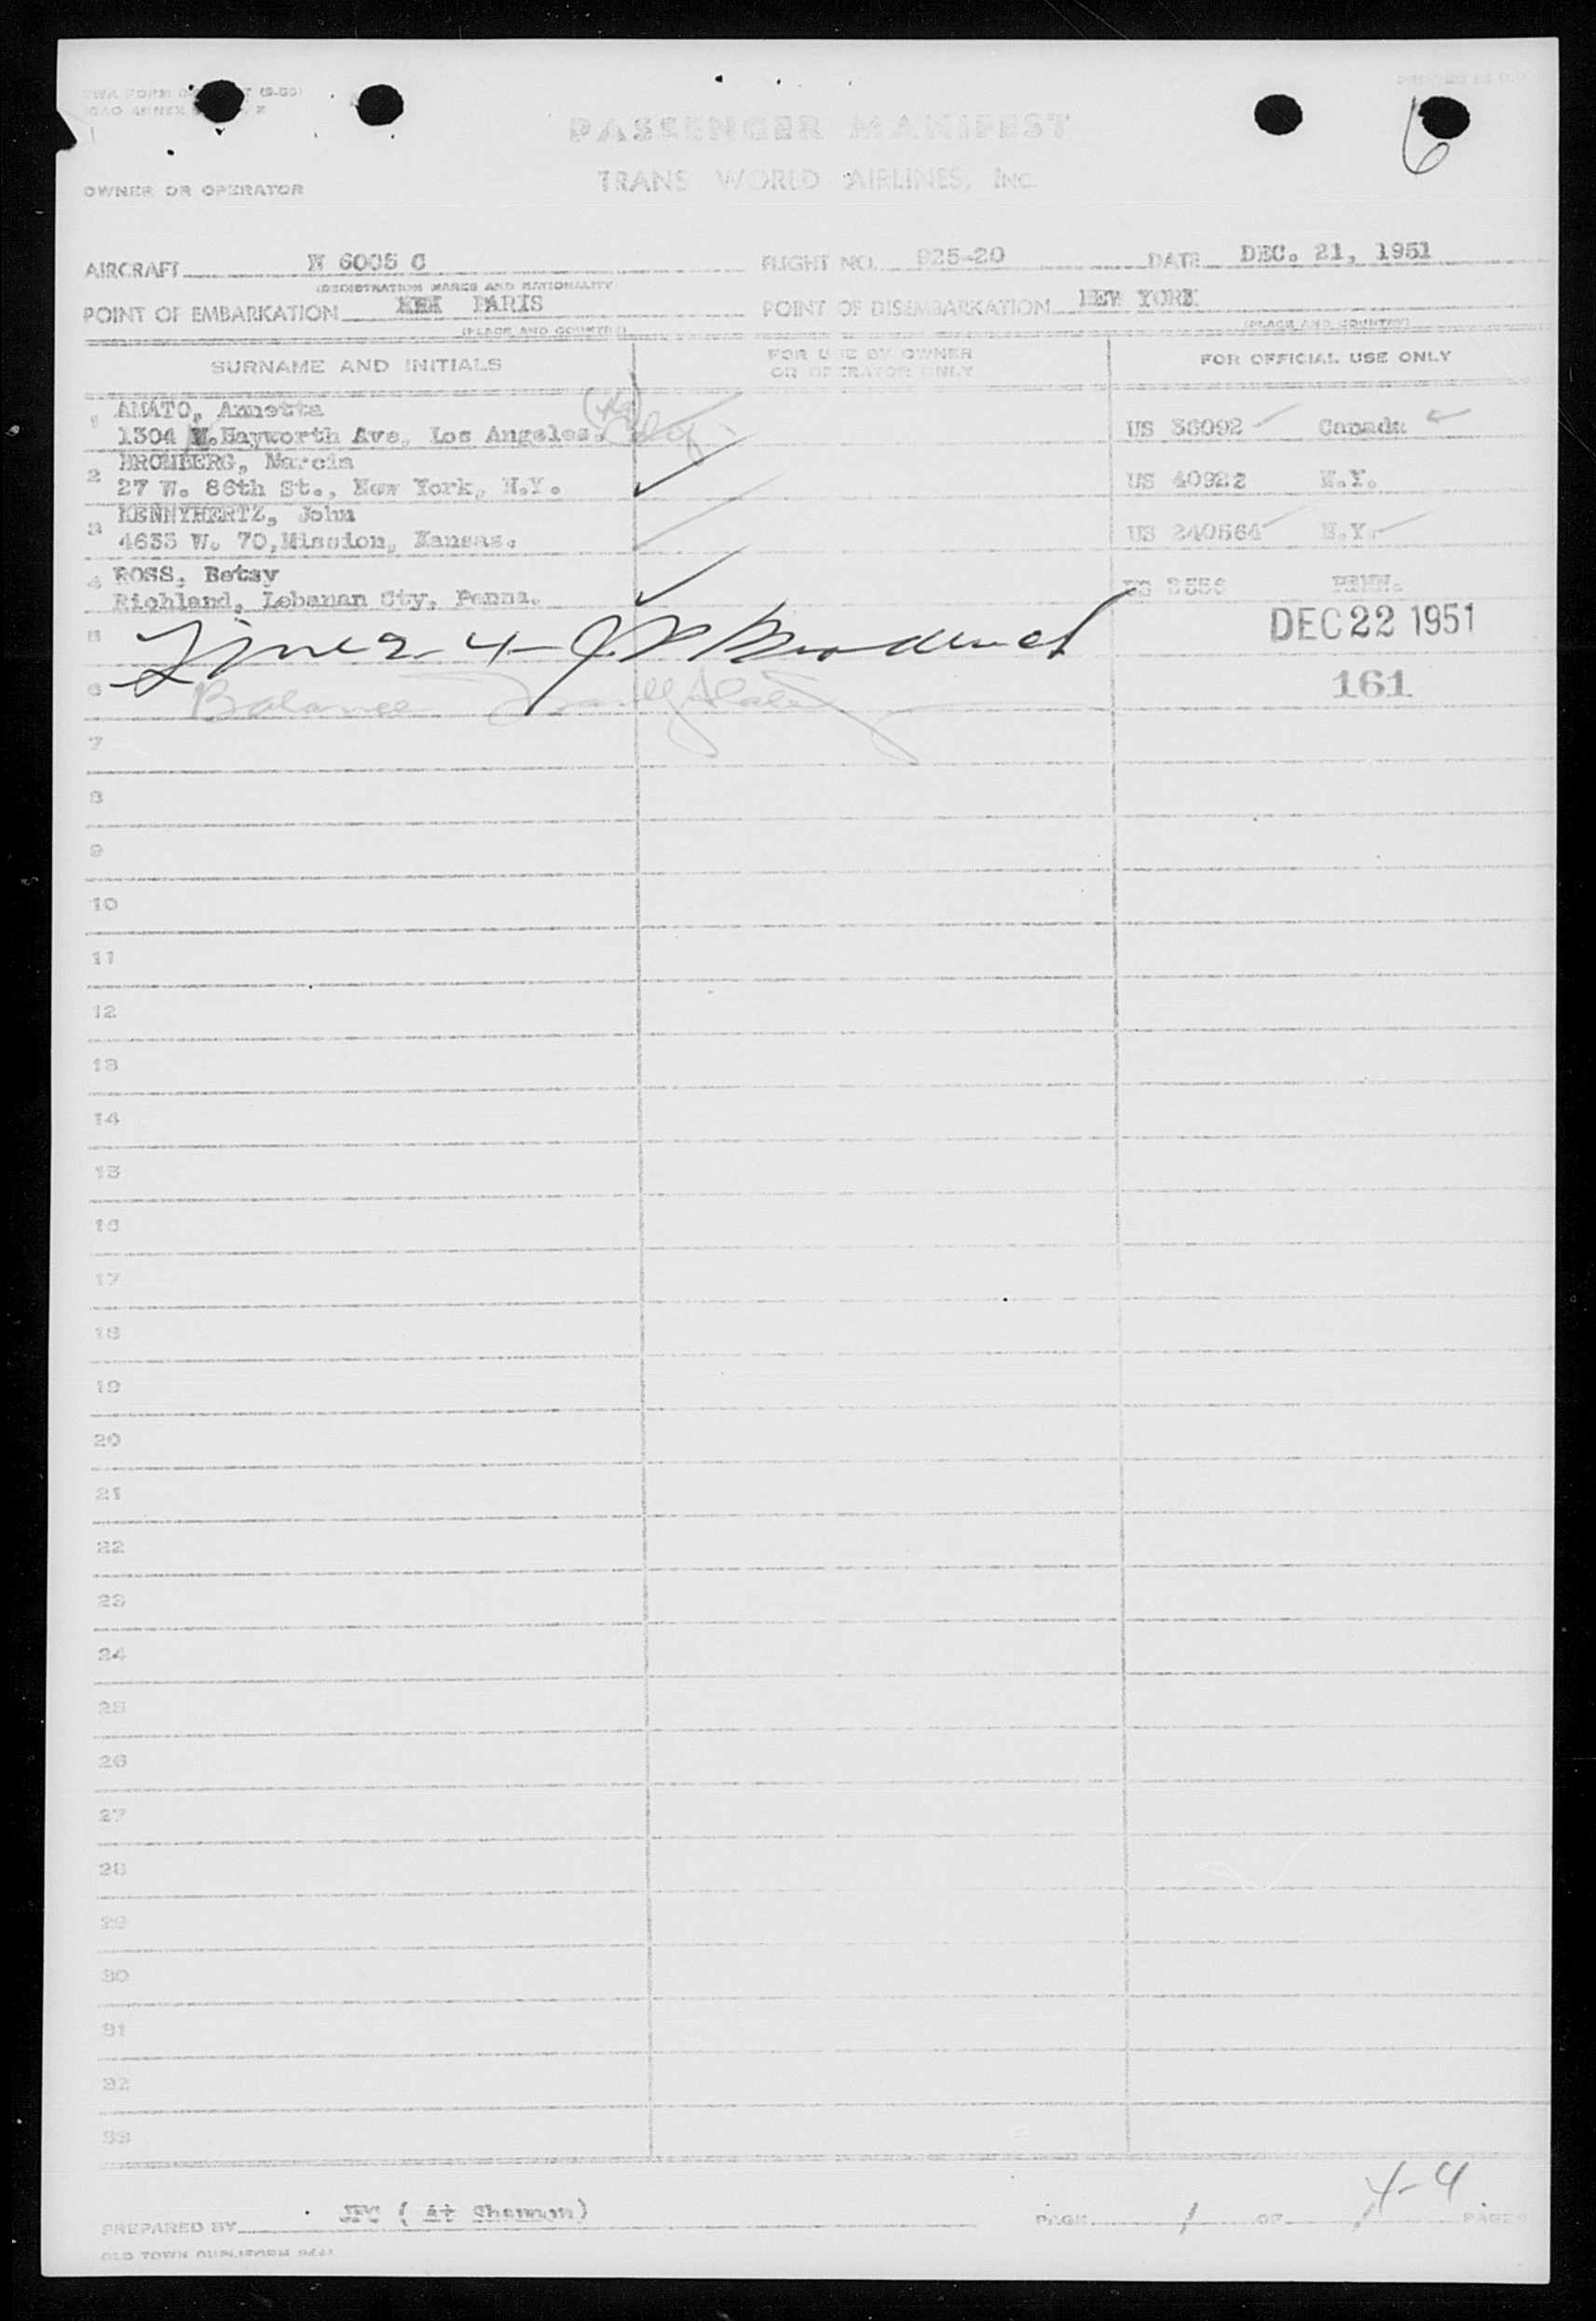 TWA FORM (9-50)
ICAO ANNEX
6
PASSENGER MANIFEST
TRANS WORLD AIRLINES, INC.
OWNER OR OPERATOR
AIRCRAFT N 6005 C FLIGHT NO. 925-20 DATE DEC. 21, 1951
(REGISTRATION MARKS AND NATIONALITY)
POINT OF EMBARKATION PARIS POINT OF DISEMBARKATION NEW YORK
(PLACE AND COUNTRY) (PLACE AND COUNTRY)
SURNAME AND INITIALS FOR USE BY OWNER OR OPERATOR ONLY FOR OFFICIAL USE ONLY
1 AMATO, Annetta
1304 N.Hayworth Ave, Los Angeles. US 36092 Canada
2 BROMBERG, Marcia
27 W. 86th St., New York, N.Y. US 40922 N.Y.
3 KENNYHERTZ, John
4635 W. 70,Mission, Kansas. US 240564 N.Y.
4 ROSS, Betsy
Richland, Lebanan Cty, Penna. US PENN.
5 Lines 2-4 DEC 22 1951
6 Balance 161
7
8
9
10
11
12
13
14
15
16
17
18
19
20
21
22
23
24
25
26
27
28
29
30
31
32
33
4-4
PREPARED BY JFC ( At Shannon) PAGE 1 OF 1 PAGES
OLD TOWN DUPLIFORM